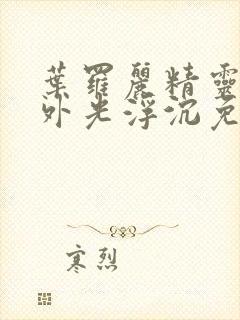 葉羅麗精靈
外光浮沉免
寒烈